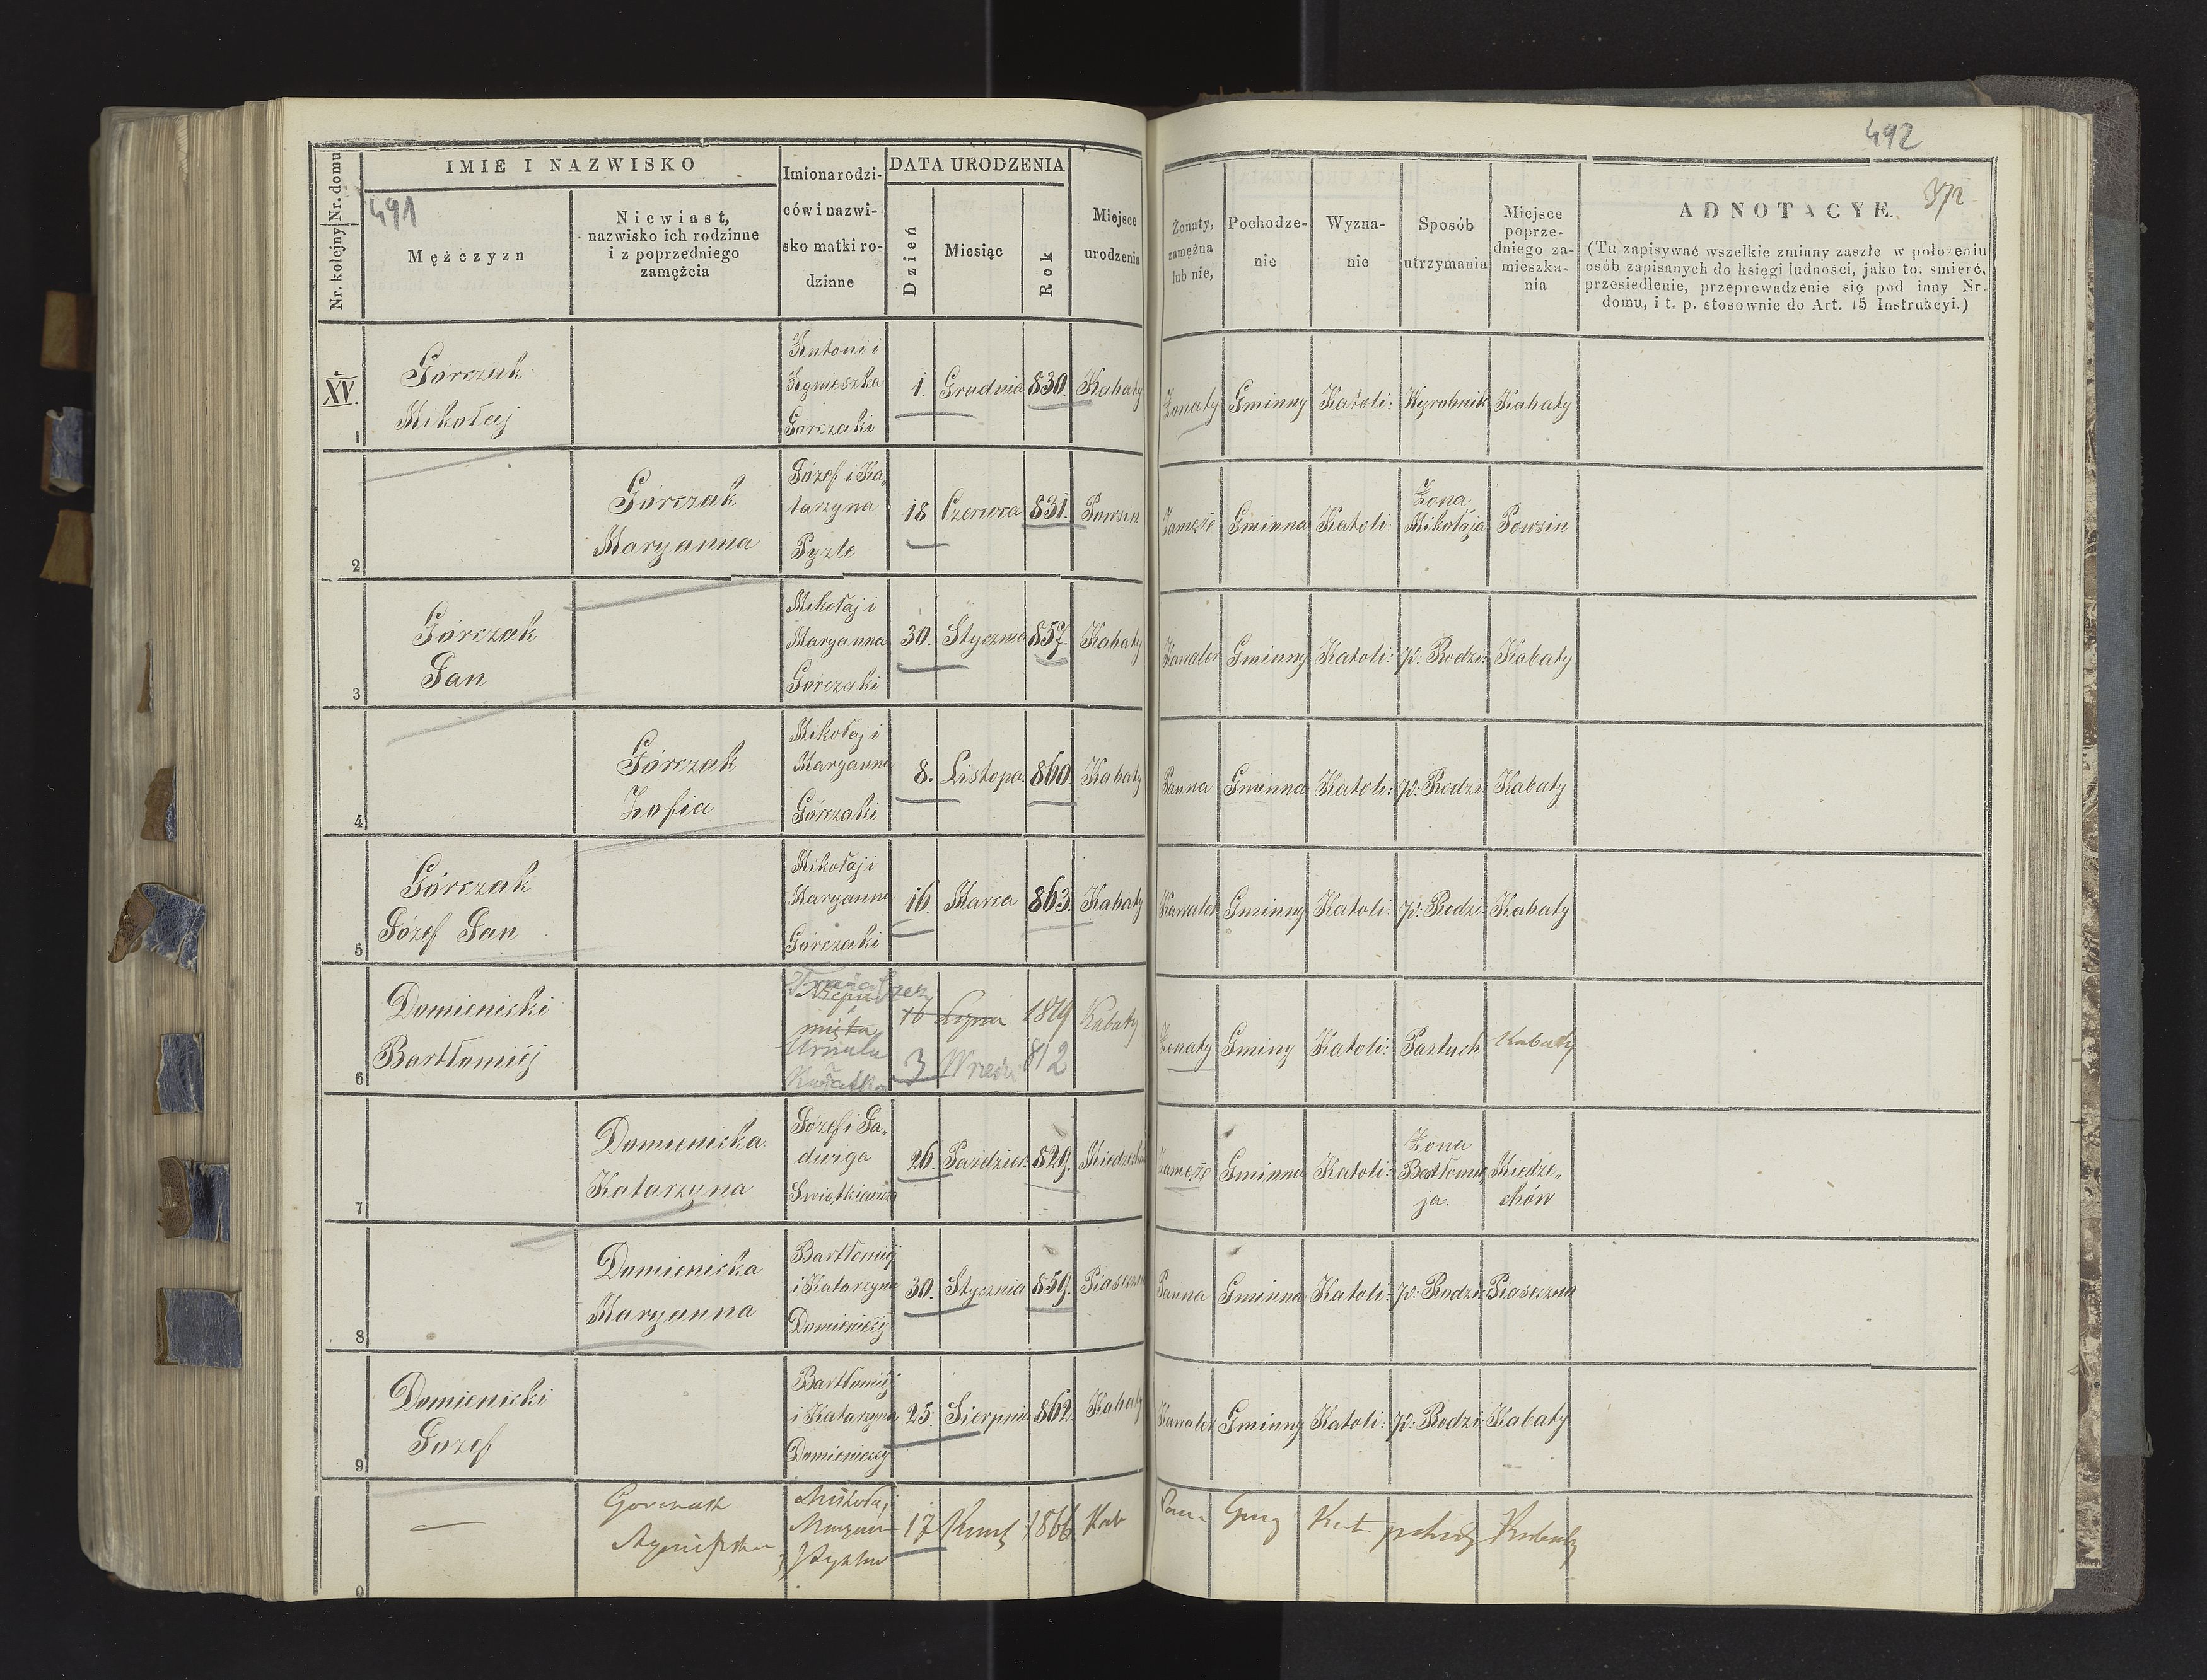 491
492
372
Nr. kolejny Nr. domu
IMIE I NAZWISKO
Mężczyzn
Niewiast,
nazwisko ich rodzinne
i z poprzedniego
zamężcia
Imiona rodzi-
ców i nazwi-
sko matki ro-
dzinne
DATA URODZENIA
Dzień
Miesiąc
Rok
Miejsce
urodzenia
Żonaty,
zamężna
lub nie,
Pochodze-
nie
Wyzna-
nie
Sposób
utrzymania
Miejsce
poprze-
dniego za-
mieszka-
nia
ADNOTACYE.
(Tu zapisywać wszelkie zmiany zaszłe w położeniu
osób zapisanych do księgi ludności, jako to: śmierć,
przesiedlenie, przeprowadzenie się pod inny Nr
domu, i t. p. stosownie do Art. 15 Instrukcyi.)
XV.
1
Górczak
Mikołaj
Antoni i
Agnieszka
Górczaki
1. Grudnia 830. Kabaty
Żonaty Gminny Katoli: Wyrobnik Kabaty
2
Górczak
Maryanna
Józef i Ka„
tarzyna
Pyzle
18. Czerwca 831. Powsin
Zamęże Gminna Katoli:
Żona
Mikołaja
Powsin
3
Górczak
Jan
Mikołaj i
Maryanna
Górczaki
30. Stycznia 857. Kabaty
Kawaler Gminny Katoli: p: Rodzi: Kabaty
4
Górczak
Zofia
Mikołaj i
Maryanna
Górczaki
8. Listopa. 860. Kabaty
Panna Gminna Katoli: p: Rodzi: Kabaty
5
Górczak
Józef Jan
Mikołaj i
Maryanna
Górczaki
16. Marca 863. Kabaty
Kawaler Gminny Katoli: p: Rodzi: Kabaty
6
Domieniski
Bartłomiéj
Urszula
16 Lipca 1819 Kabaty
3 Wrześ 812
Żonaty Gminy Katoli: Pastuch Kabaty
7
Domieniska
Katarzyna
Józef i Ja„
dwiga
26. Paździer: 829.
Zamęże Gminna Katoli:
Żona
Bartłomie
ja.
Miedze„
chów
8
Domieniska
Maryanna
Bartłomiéj
i Katarzyna
Domieniscy
30. Stycznia 859. Piaseczno
Panna Gminna Katoli: p: Rodzi: Piaseczno
9
Domieniski
Jozef
Bartłomiéj
i Katarzyna
Domieniscy
25. Sierpnia 862. Kabaty
Kawaler Gminny Katoli: p: Rodzi: Kabaty
0
Gorczak
Agnieszka
Mikołaj
Maryan
17 1866 Kab
Kat Kabaty